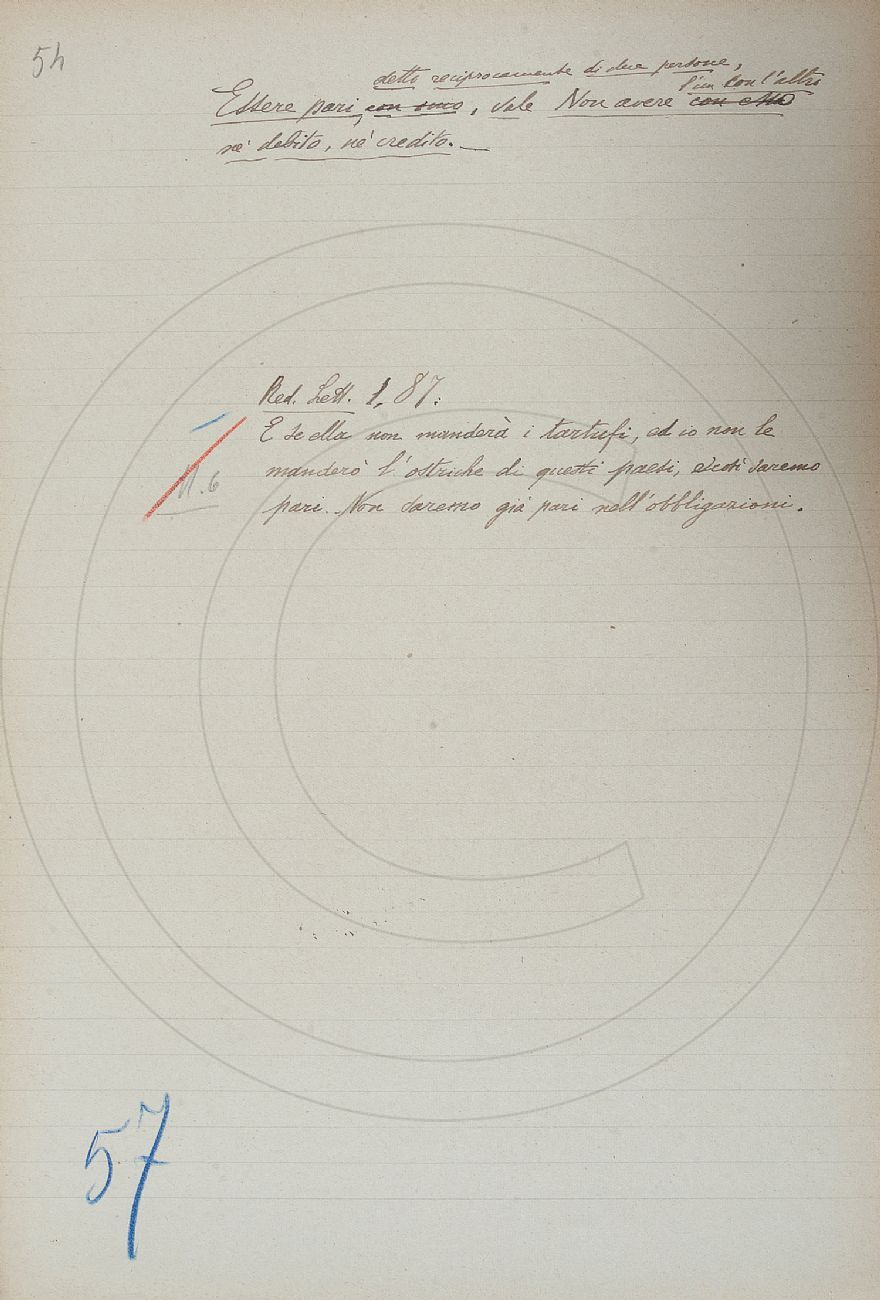 54
detto reciprocamente di due persone,
l'un con l'altro
Essere pari, con uno, vale Non avere con esso
nè debito, nè credito. —
Red. Lett. 1, 87:
E se ella non manderà i tartufi, ed io non le
manderò l'ostriche di questi paesi, e così saremo
pari. Non saremo già pari nell'obbligazioni.
11.6
57